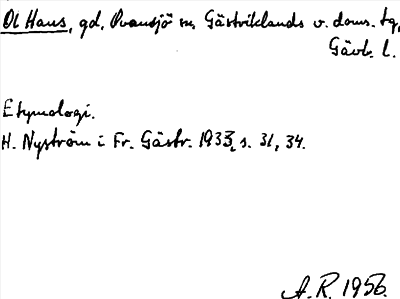 Ol Hans, gd, Ovansjö sn, Gästriklands v. doms. tg,
Gävb. l.
Etymologi.
H. Nyström i Fr. Gästr. 1933, s. 31, 34.
A.R. 1956.